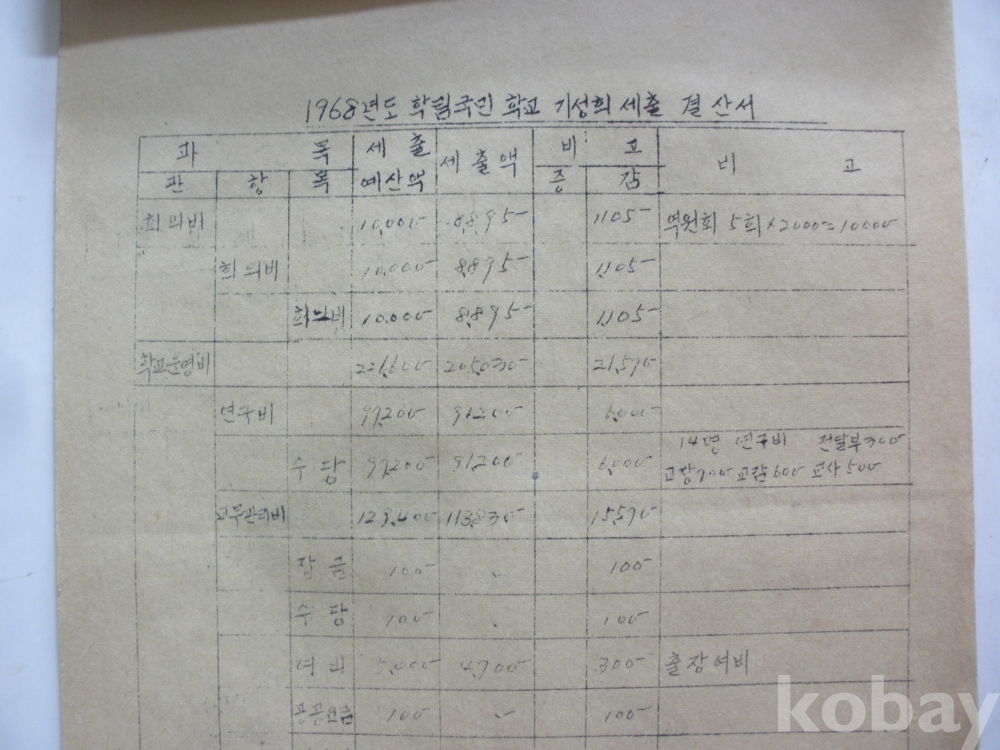 1968년도 학림국민학교 기성회 세출 결산서
과 목 세출 세출액 비 고 비 고
관 항 목 예산액 증 감
회의비 10,000 8,895 1105 역원회 5회×2000=10000
회의비 10,000 8,895 1,105
회의비 10,000 8,895 1,105
학교운영비 205,030 21,570
연구비 97,200 91,200 6,000
14명 연구비 전달부300
수당 97,200 91,200 6,000 교장700 교감600 교사500
교무관리비 129,400 113,830 15,570
잡급 100 100
수당 100 100
여비 5,000 4,700 300 출장여비
공공요금 100 100
kobay